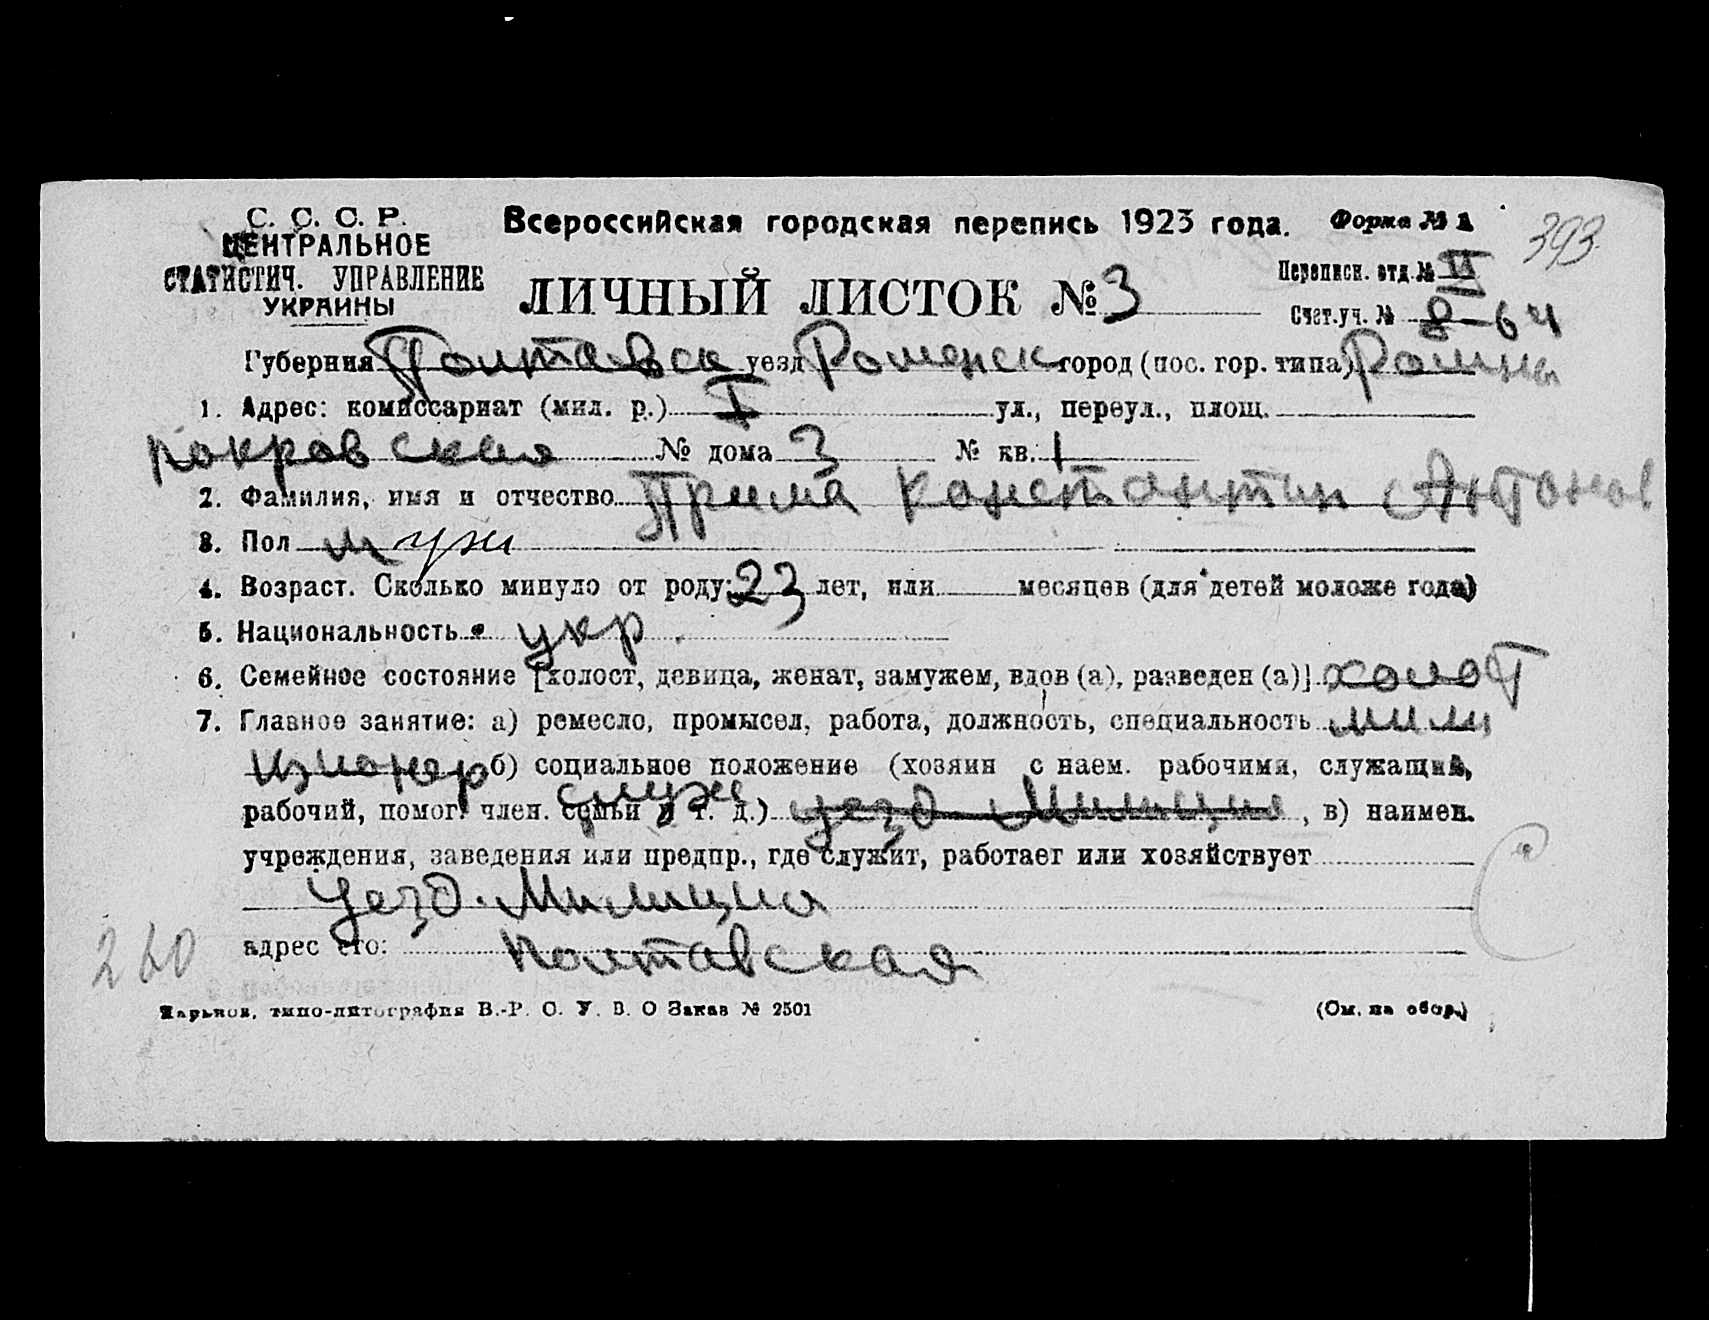 С. С. С. Р.
ЦЕНТРАЛЬНОЕ
СТАТИСТИЧ. УПРАВЛЕНИЕ
УКРАИНЫ
Всероссийская городская перепись 1923 года. Форма № 1
393
ЛИЧНЫЙ ЛИСТОК № 3
Переписн. отд. №
Счет. уч. № 8-64
Губерния Полтавск уезд Роменск город (пос. гор. типа) Ромны
1. Адрес: комиссариат (мил. р.) I ул., переул., площ.
покровская № дома 3 № кв. 1
2. Фамилия, имя и отчество Прима Константин Антонов
3. Пол муж
4. Возраст. Сколько минуло от роду: 23 лет, или месяцев (для детей моложе года)
5. Национальность укр.
6. Семейное состояние [холост, девица, женат, замужем, вдов (а), разведен (а)] холост
7. Главное занятие: а) ремесло, промысел, работа, должность, специальность мили
ционер б) социальное положение (хозяин с наем. рабочими, служащий,
служ
рабочий, помог. член. семьи и т. д.) уезд Милиция , в) наимен.
учреждения, заведения или предпр., где служит, работает или хозяйствует
Уезд. Милиция
адрес его: полтавская
260
Харьков, типо-литография В.-Р. С. У. В. О Заказ № 2501 (См. на обор.)